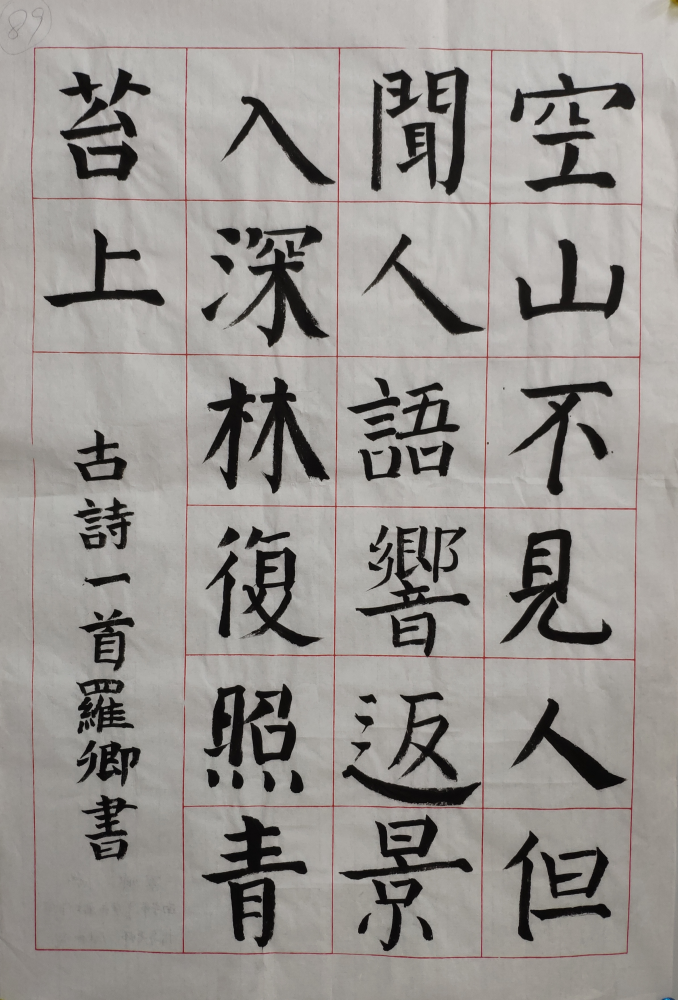 空山不見人但
聞人語響返景
入深林復照青
苔上
古詩一首羅卿書
89